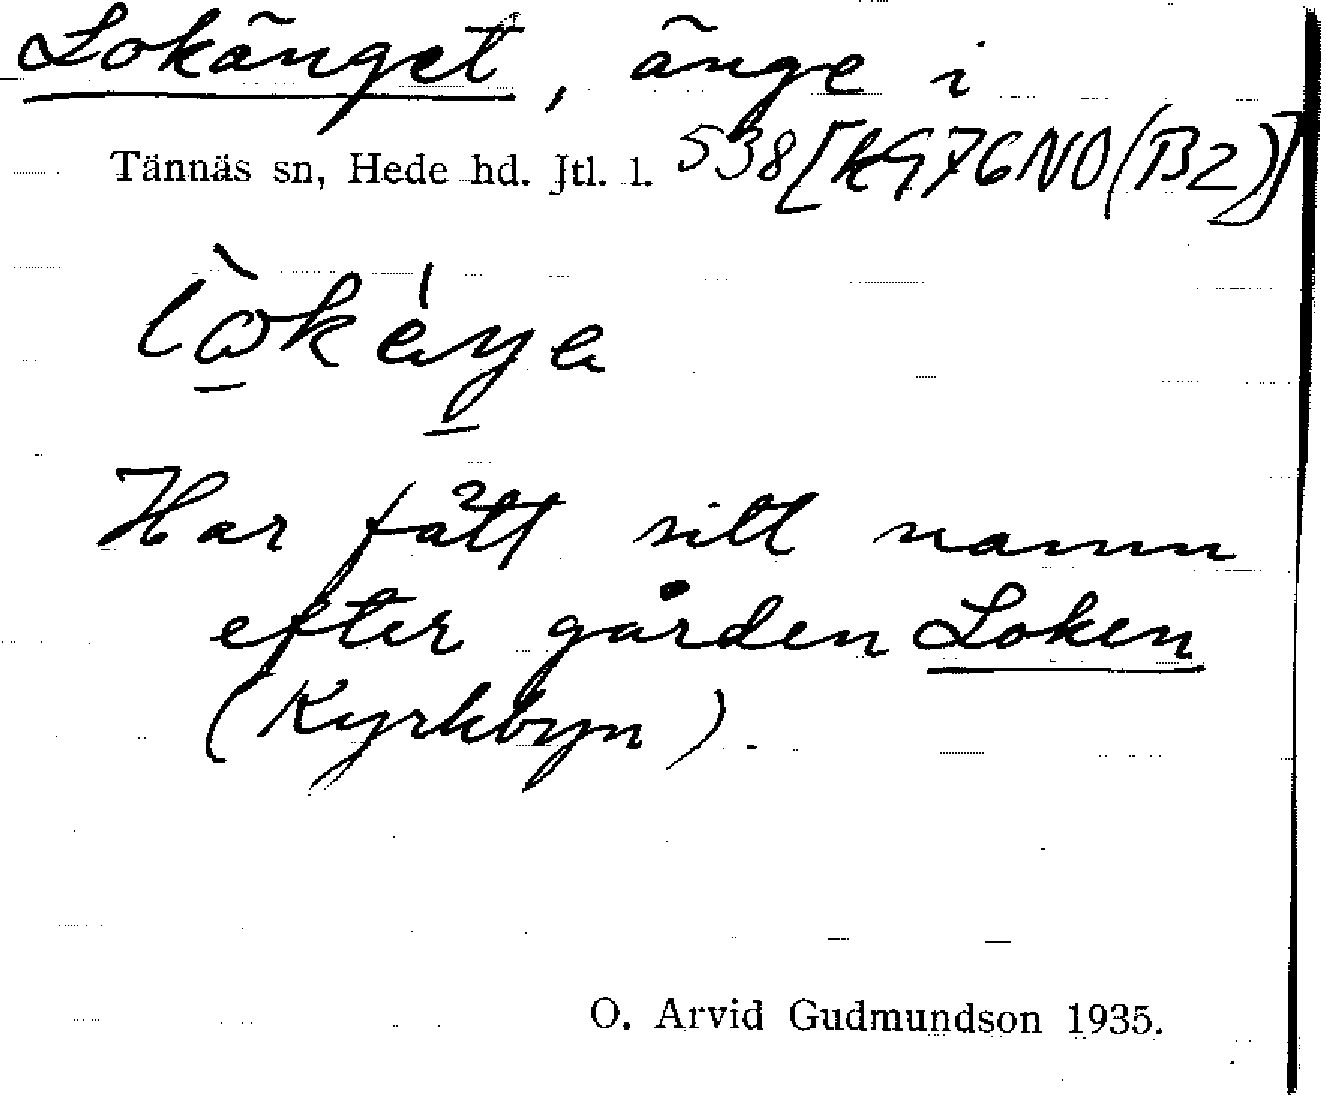 Lokänget, änge i
Tännäs sn, Hede hd. Jtl. l. 538[K976NO(B2)]
Har fått sitt namn
efter gården Loken
(Kyrkbyn).
O. Arvid Gudmundson 1935.